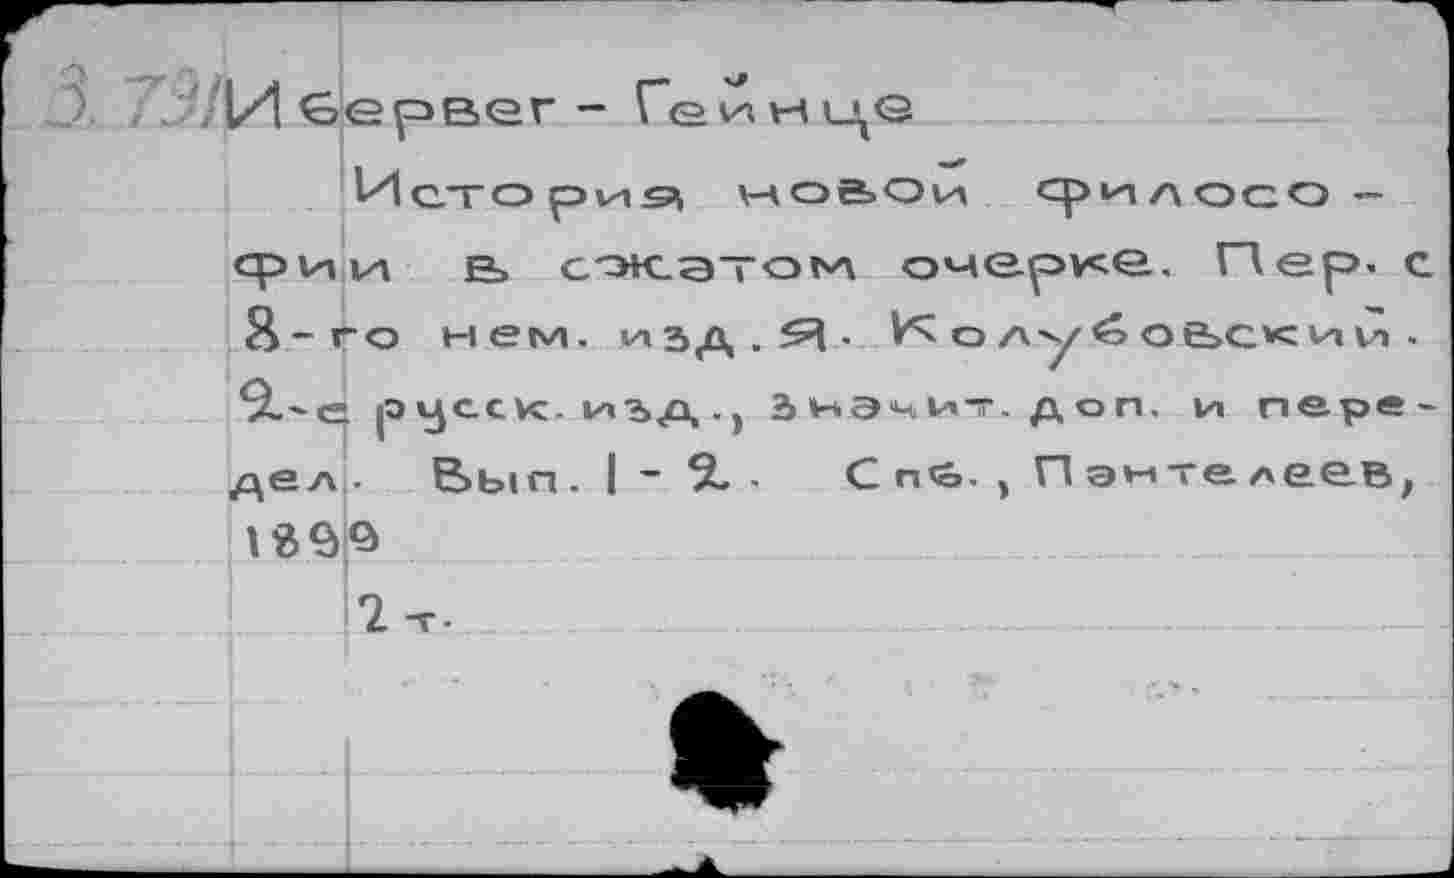 3.73/Ибервег - Гейнце
История новой филосо-
фии в сжатом очерке. Пер. с
8-го нем. изд. Я. Колубовский.
2-е русск. изд., значит. доп. и пере-
дел. Вып. 1-2. Спб., Пантелеев,
1899
2 т.